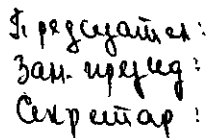 Председател:
Зам. председ:
Секретар: